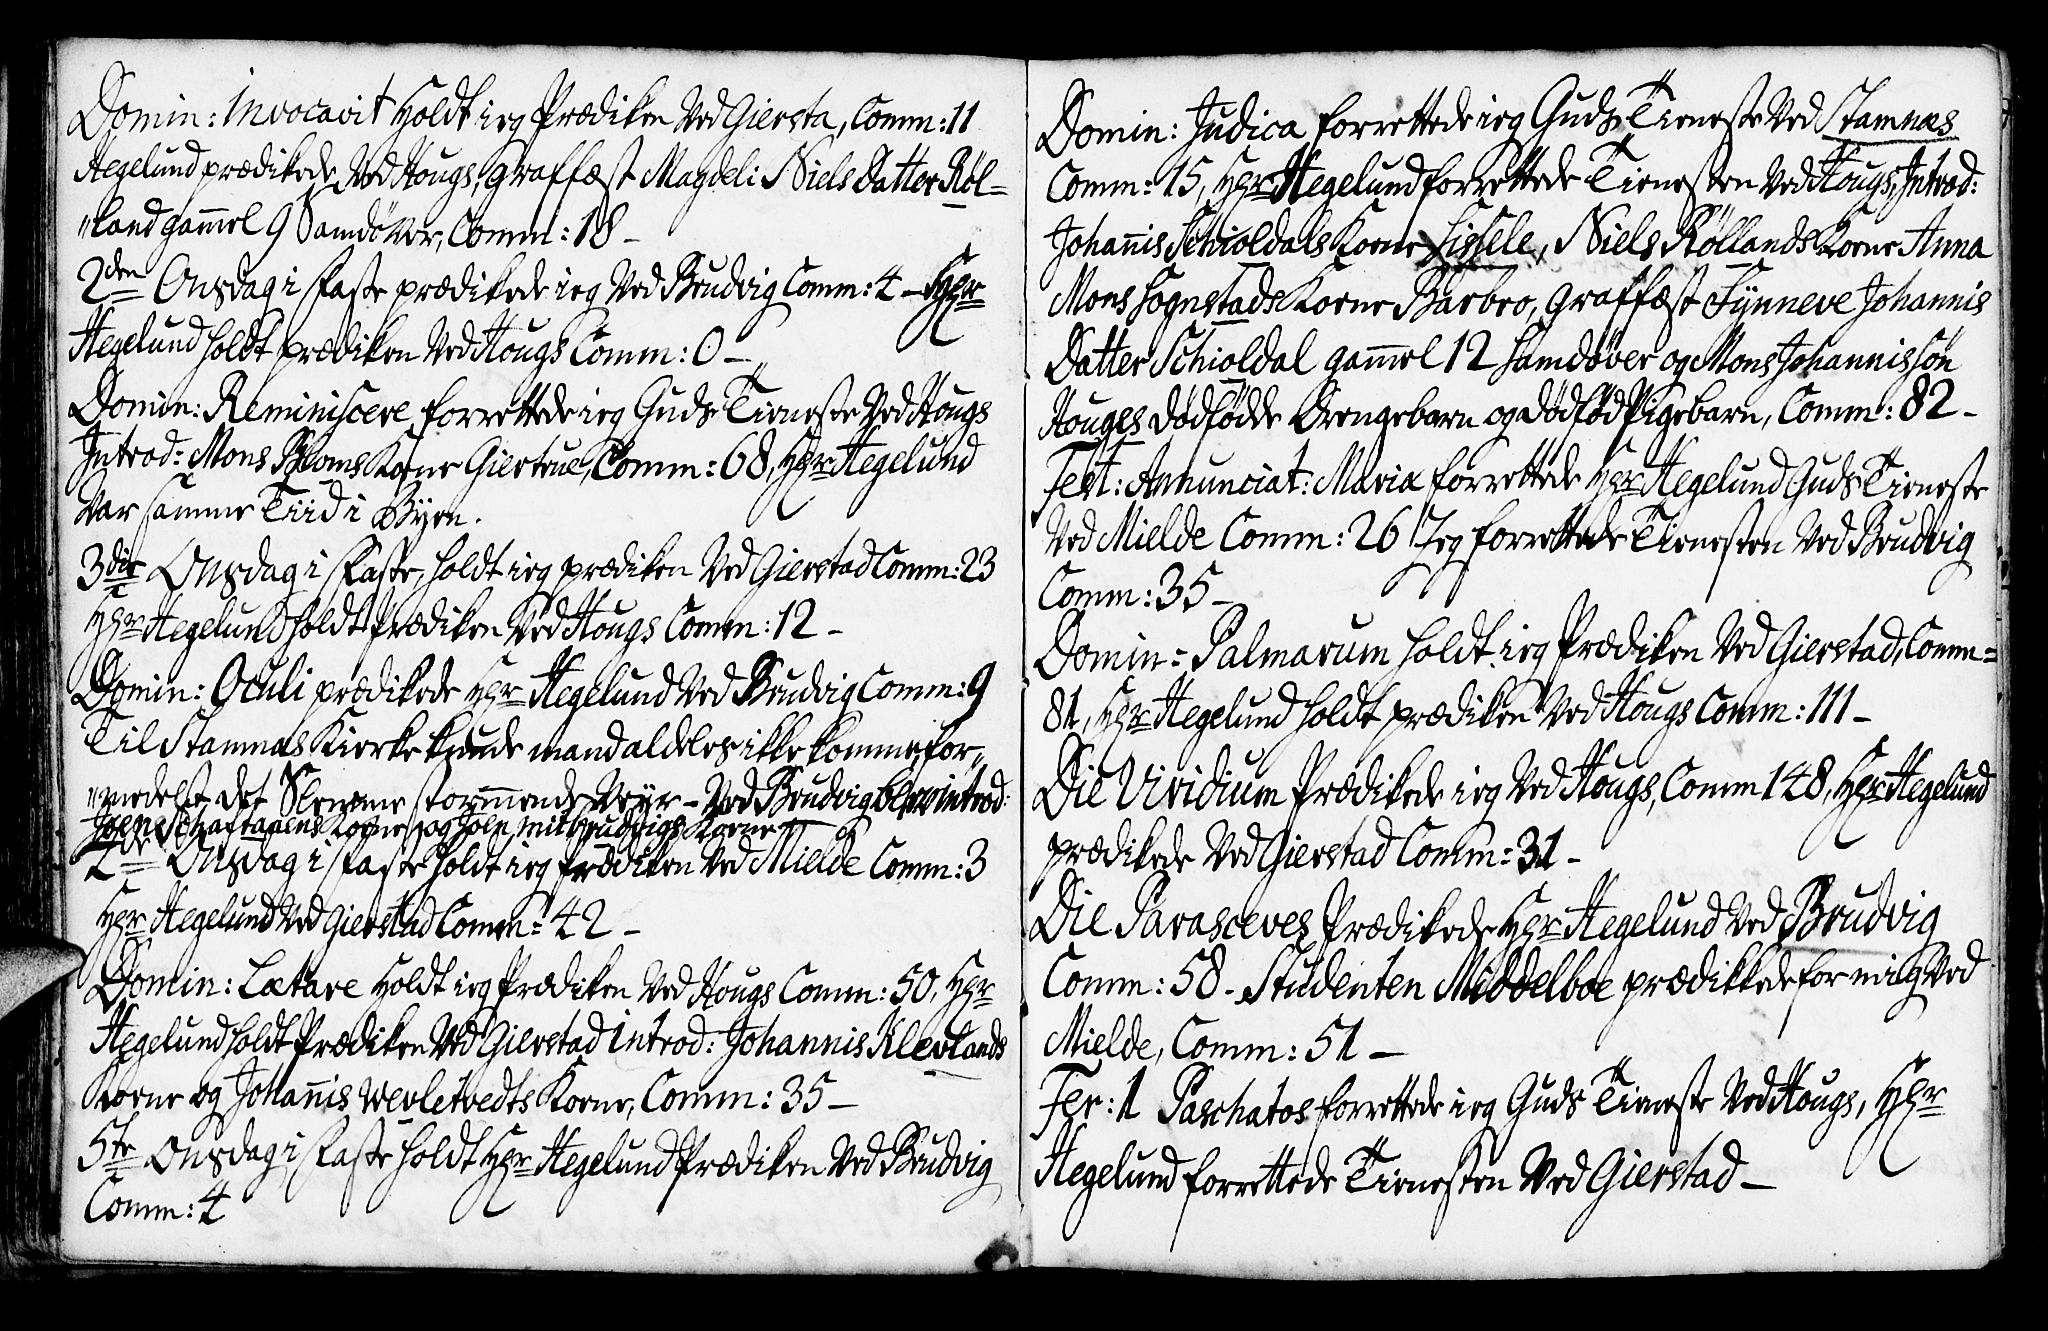 Domin: Invocavit Holdt ieg Prædiken Ved Giersta, Comm: 11
Hegelund prædikede Ved Hougs, Graffæst Magdeli Niels Datter Röl-
"land gam̄el 9 Samdöver, Comm: 18 -
2den Onsdag i Faste prædikede ieg Ved Brudvig Comm: 4 - Hr
Hegelund holdt prædiken Ved Hougs Comm: 0 -
Domin: Reminiscere forrettede ieg Guds Tieneste Ved Hougs
Introd: Mons Bloms Kone Giertrue, Comm: 68, Hr Hegelund
Var samme Tiid i Byen.
3die Onsdag i Faste, holdt ieg prædiken Ved Gierstad Comm: 23
Hr Hegelund holdt Prædiken Ved Hougs Comm: 12 -
Domin: Oculi prædikede Hr Hegelund Ved Brudvig Comm: 9
Til Stamnæs Kierke kunde mand aldeles ikke komme, for-
"medelst det Slemme stormende Veyr - Ved Brudvig blev introd:
Kone, og Joen Mitbrudvigs Kone
4de Onsdag i Faste holdt ieg prædiken Ved Mielde Comm: 3
Hr Hegelund Ved Gierstad Comm: 42 -
Domin: Lætare Holdt ieg Prædiken Ved Hougs Comm: 50, Hr
Hegelund holdt Prædiken Ved Gierstad introd: Johannis Klevlands
Kone og Johan̄is Wevletvedts Kone, Comm: 35 -
5te Onsdag i Faste holdt Hr Hegelund Prædiken Ved Brudvig
Comm: 4
Domin: Judica forrettede ieg Guds Tieneste Ved Stamnæs
Comm: 15, Hr Hegelund forrettede Tienesten Ved Hougs, Introd:
Johan̄is Schioldals Kone Sissele, Niels Röllands Kone Anna
Mons Sognstads Kone Barbro, Graffæst Synneve Johannis
Datter Schioldal gam̄el 12 Samdöver og Mons Johannissön
Houges dödfödde Drengebarn og dödföd Pigebarn, Comm: 82 -
Fest: Annunciat: Mariæ forrettede Hr Hegelund Guds Tieneste
Ved Mielde Comm: 26 Jeg forrettede Tienesten Ved Brudvig
Comm: 35 -
Domin: Palmarum holdt ieg Prædiken Ved Gierstad, Comm:
81, Hr Hegelund holdt prædiken Ved Hougs Comm: 111 -
Die Viridium Prædikede ieg Ved Hougs, Comm 148, Hr Hegelund
prædikede Ved Gierstad Comm: 31 -
Die Parasceves Prædikede Hr Hegelund Ved Brudvig
Comm: 58 - Studenten Middelboe prædikkede for mig Ved
Mielde, Comm: 51 -
Fer: 1 Paschatos forrettede ieg Guds Tieneste Ved Hougs, Hr
Hegelund forrettede Tienesten Ved Gierstad -